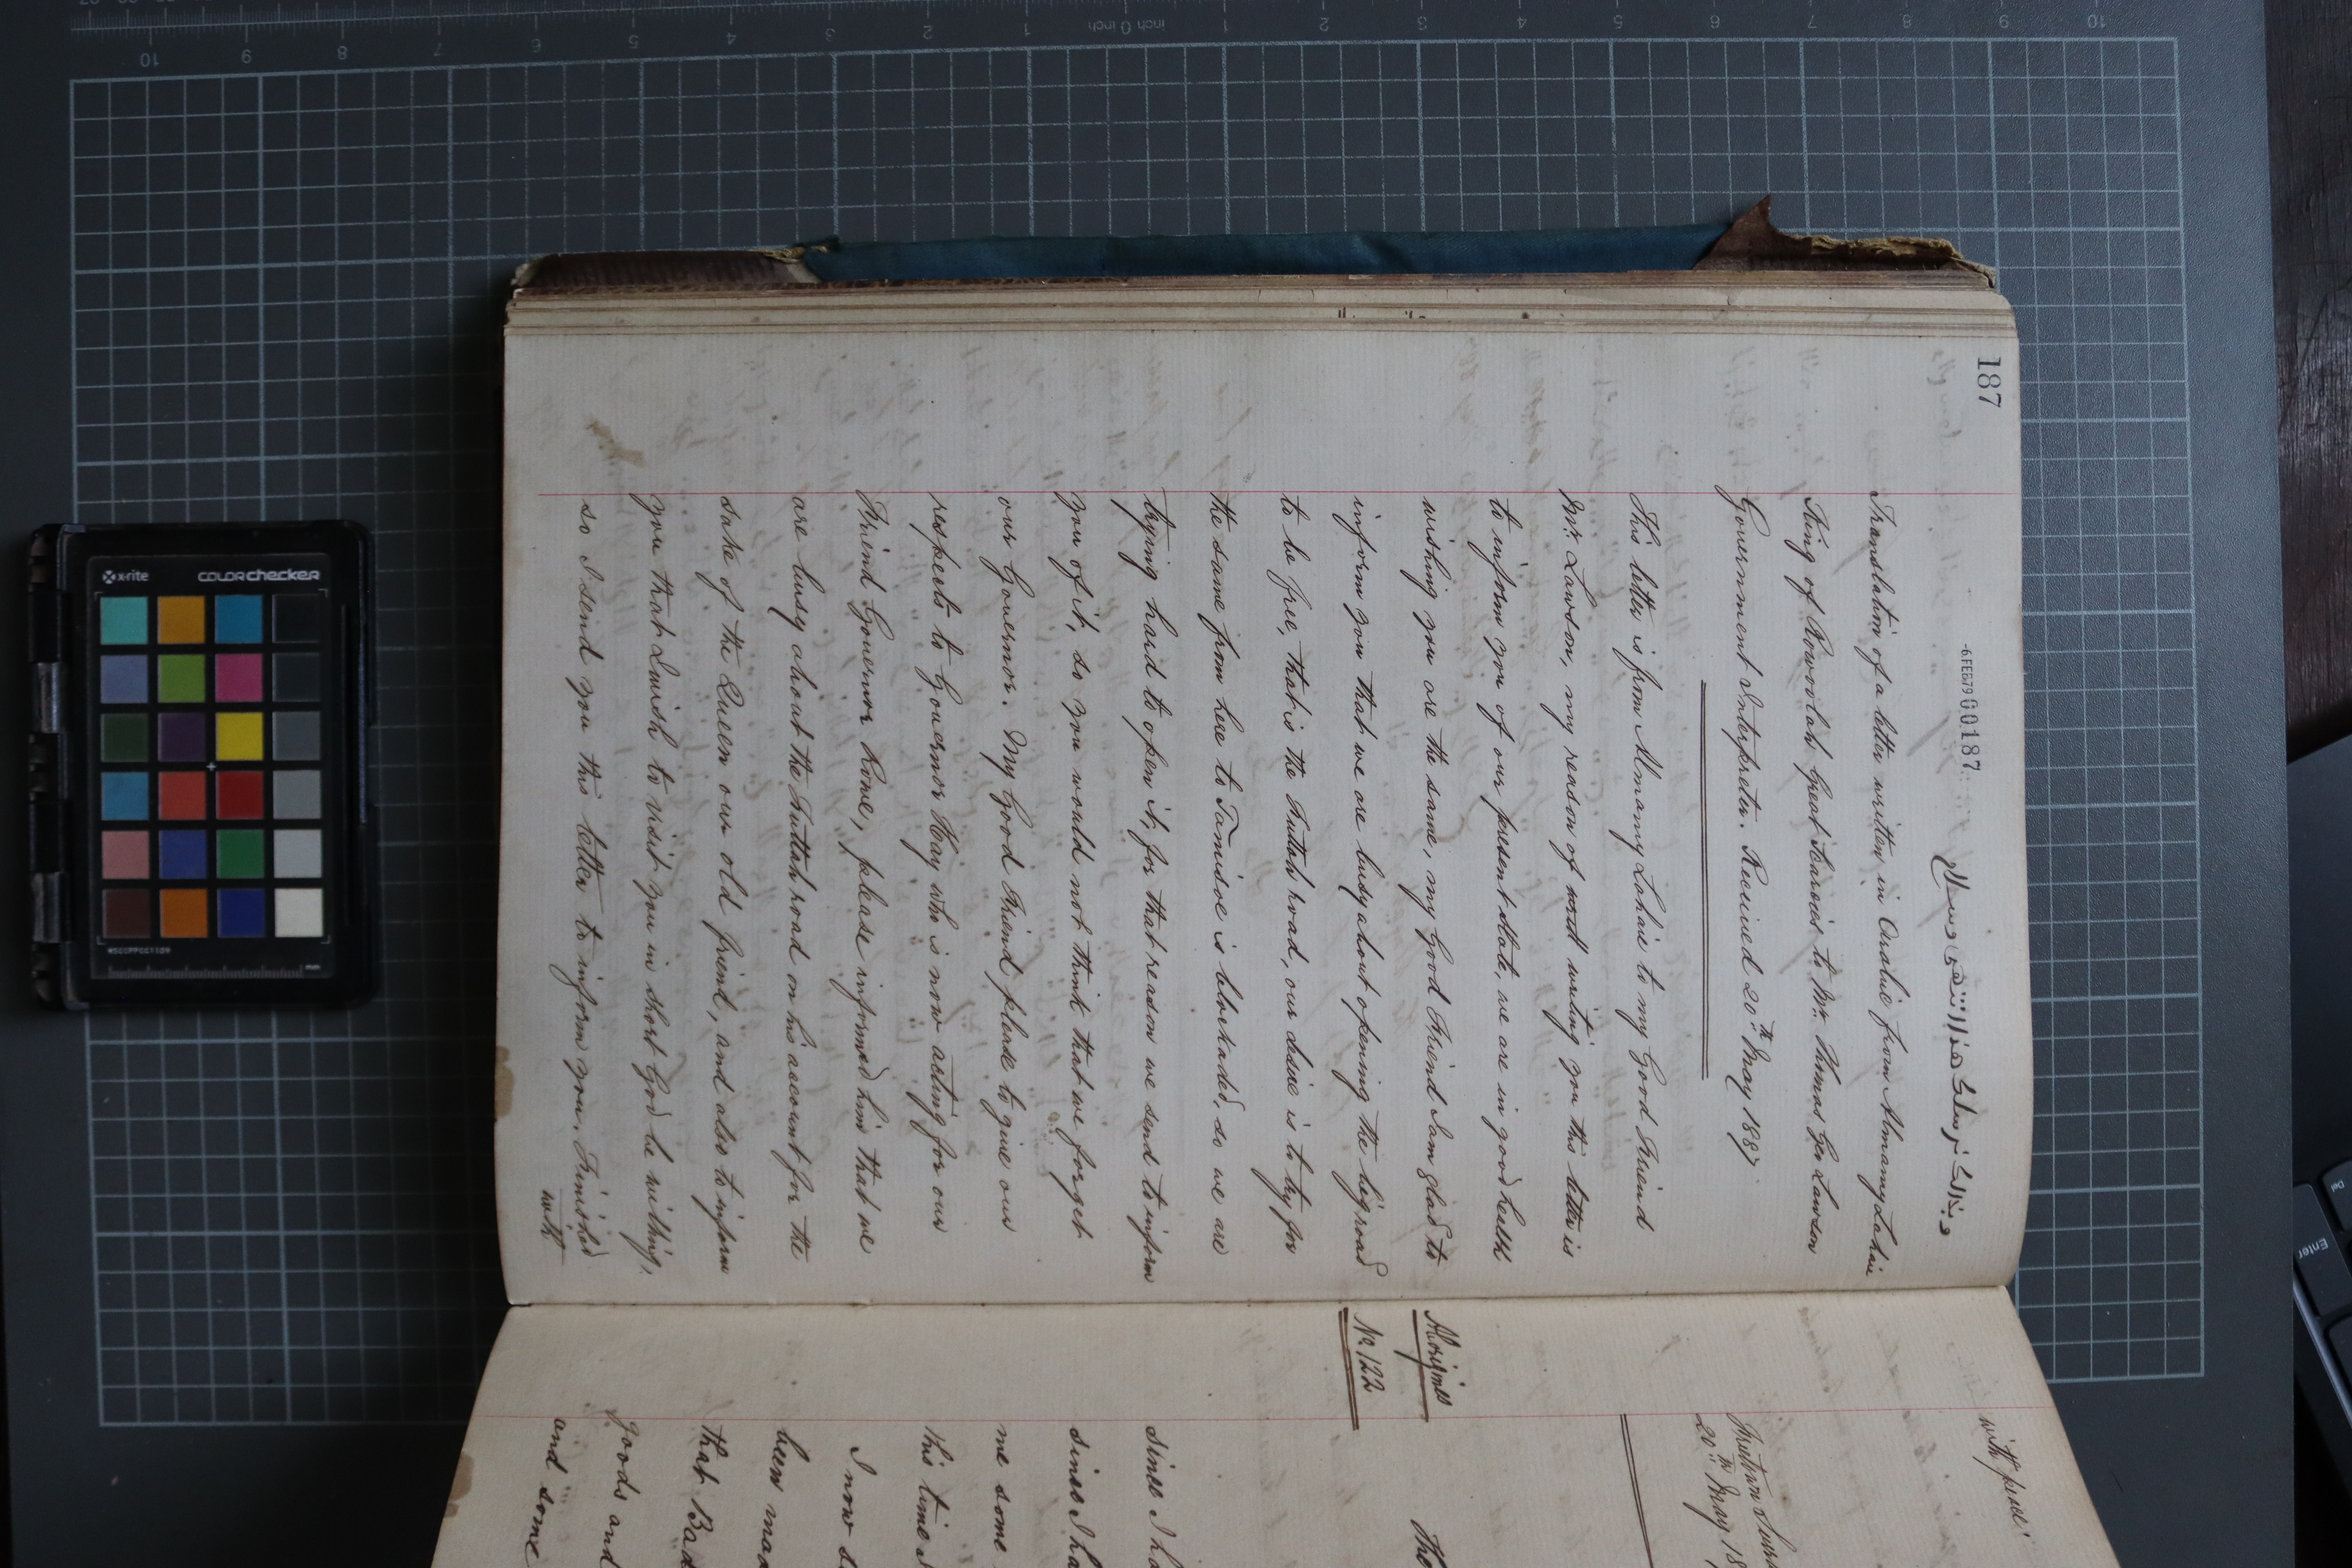 187
-6FEB79 000187
Translation of a letter written in Arabic from Almamy Lahai
King of Rowoolah Great Scarcies to Mr. Thomas Geo Lawson
Government Interpreter. Received 20th May 1887
This letter is from Almamy Lahai to my Good Friend
Mr. Lawson, my reason of writing you this letter is
to inform you of our present state, we are in good health
wishing you are the same, my Good Friend I am glad to
inform you that we are busy about opening the big road
to be free, that is the Futtah road, our desire is to try for
the same from here to Tamisoe is blockaded, so we are
trying hard to open it, for that reason we send to inform
you of it, so you would not think that we forget
our Governor. My Good Friend please to give our
respects to Governor Hay who is now acting for our
Friend Governor Rowe, please informed him that we
are busy about the Futtah road on his account for the
sake of the Queen our old friend, and also to inform
you that I wish to visit you in short God be withing,
so I send you this letter to inform you. Finished
with
with peace
20th May 18
Aborigines
No. 122
The
since I ha
since I ha
me some
this time
I now s
been mad
that Bad
goods and
and some
x-rite
colorchecker
mm
inch 0 inch
Enter
Del